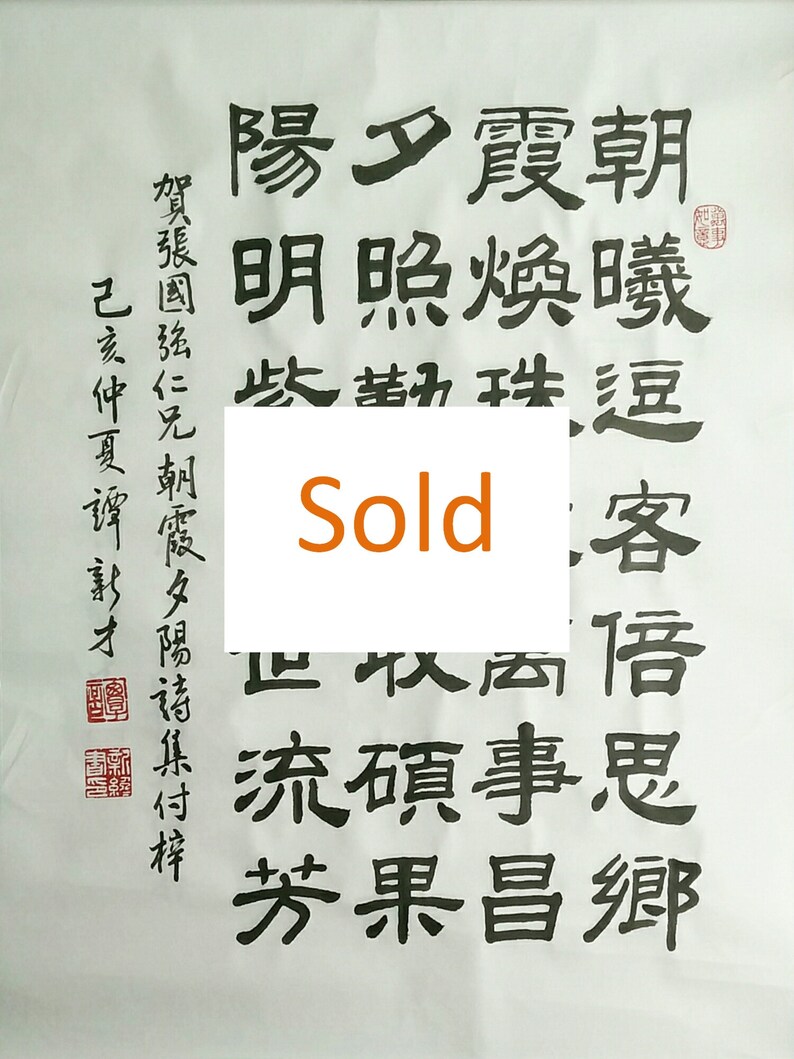 朝曦逗客倍思鄉
霞煥珠萬事昌
夕照勤碩果
陽明紫世流芳
賀張國強仁兄朝霞夕陽詩集付梓
己亥仲夏譚新才
萬事如意
Sold